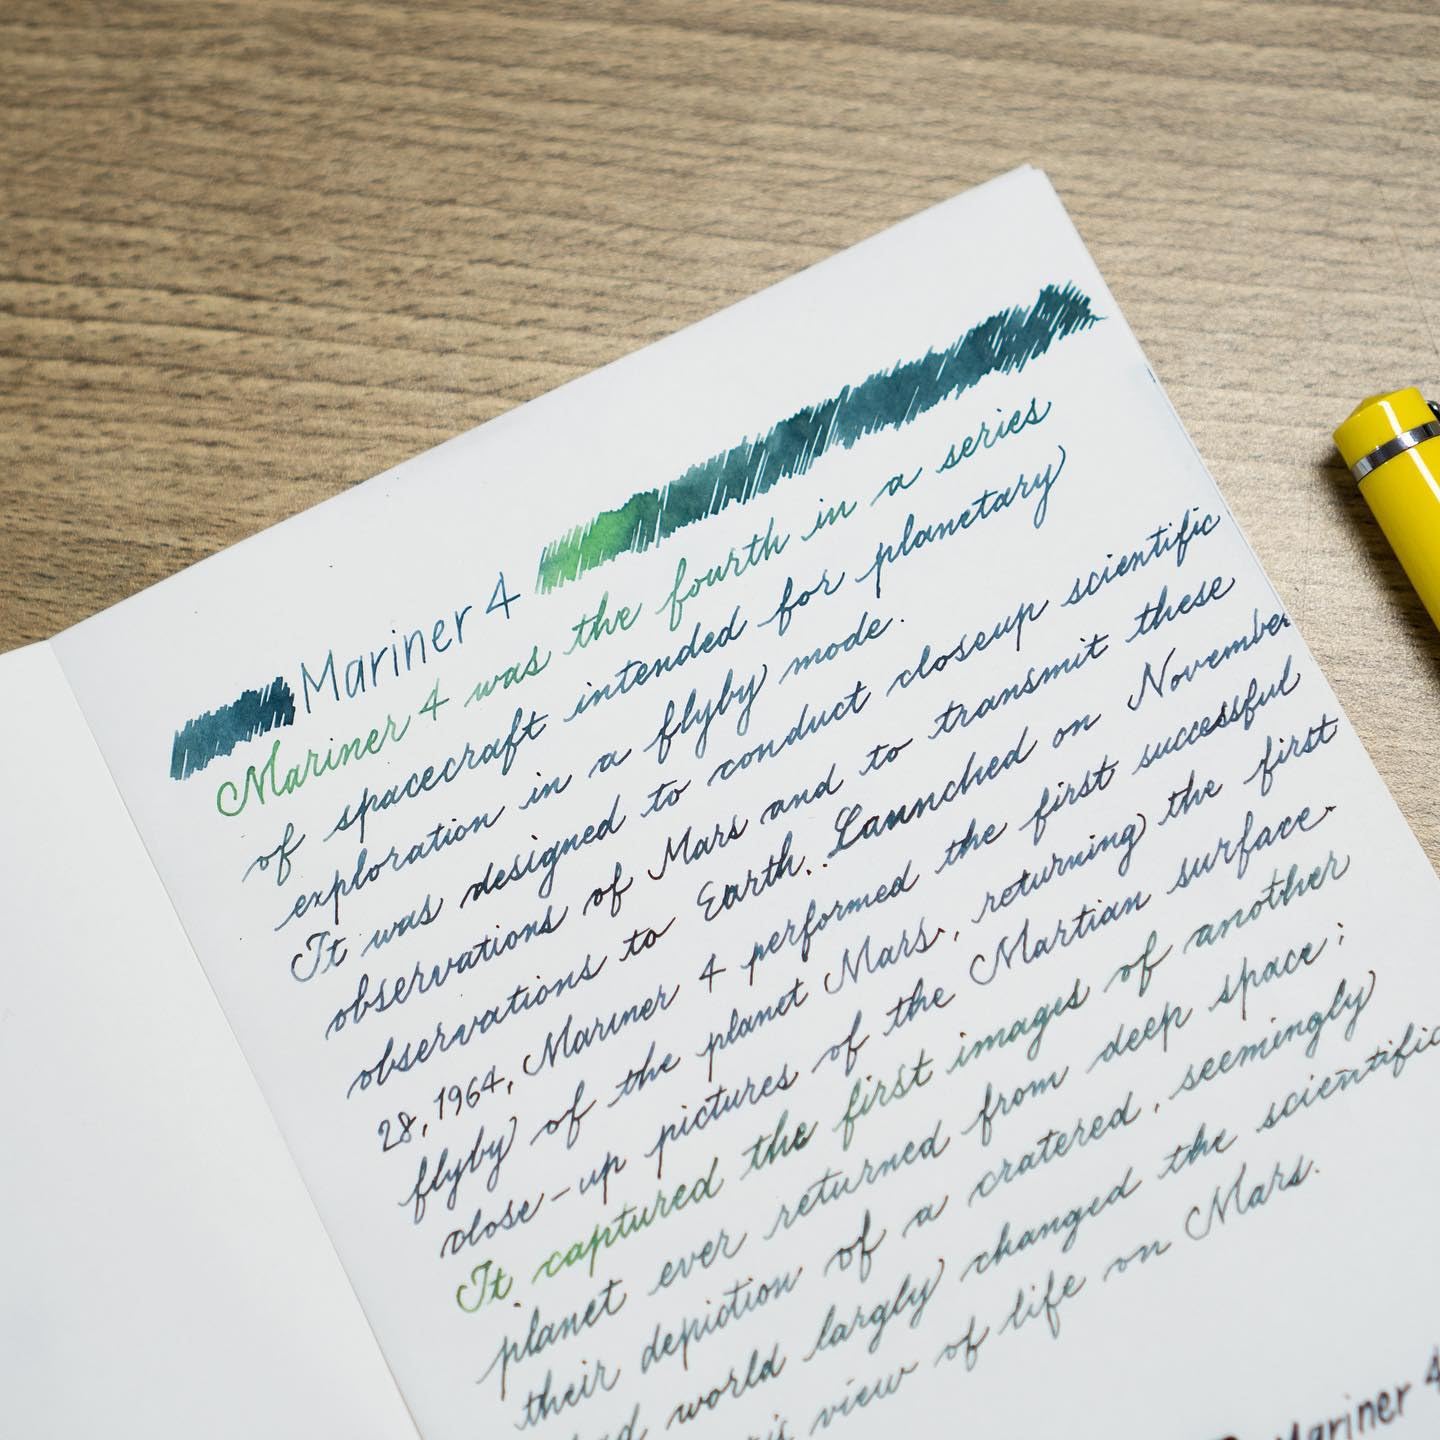 Mariner 4
Mariner 4 was the fourth in a series
of spacecraft intended for planetary
exploration in a flyby mode.
It was designed to conduct closeup scientific
observations of Mars and to transmit these
observations to Earth. Launched on November
28, 1964, Mariner 4 performed the first successful
flyby of the planet Mars, returning the first
close-up pictures of the Martian surface.
It captured the first images of another
planet ever returned from deep space;
their depiction of a cratered, seemingly
world largly changed the scientific
view of life on Mars.
Mariner 4